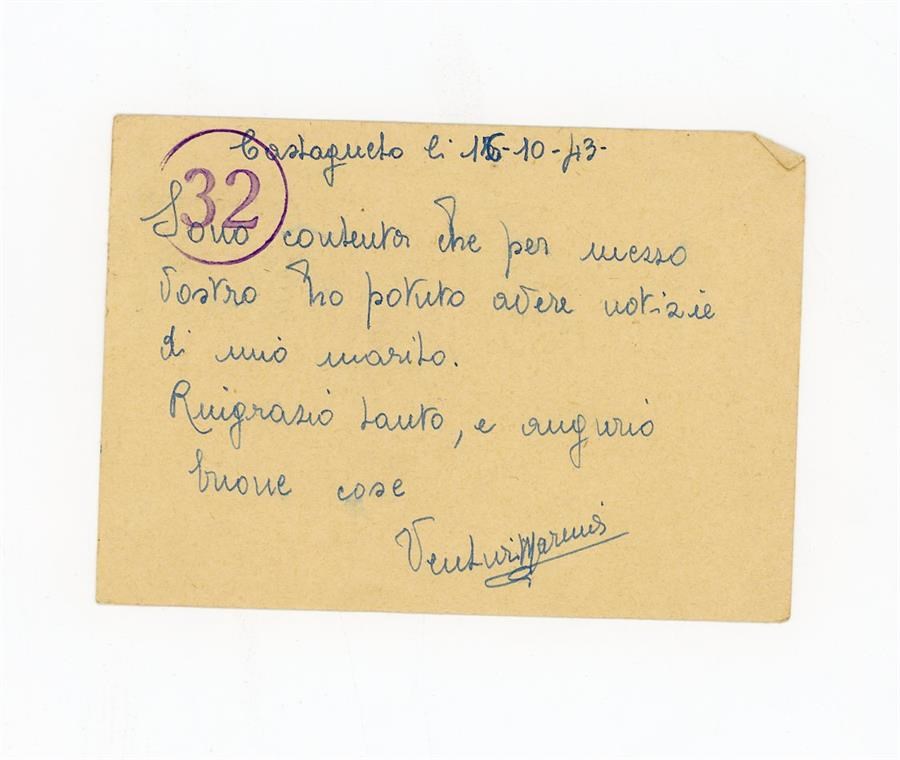 Castagneto li 16-10-43-
32
Sono contenta che per mezzo
vostro ho potuto avere notizie
di mio marito.
Ringrazio tanto, e auguro
buone cose
Venturi